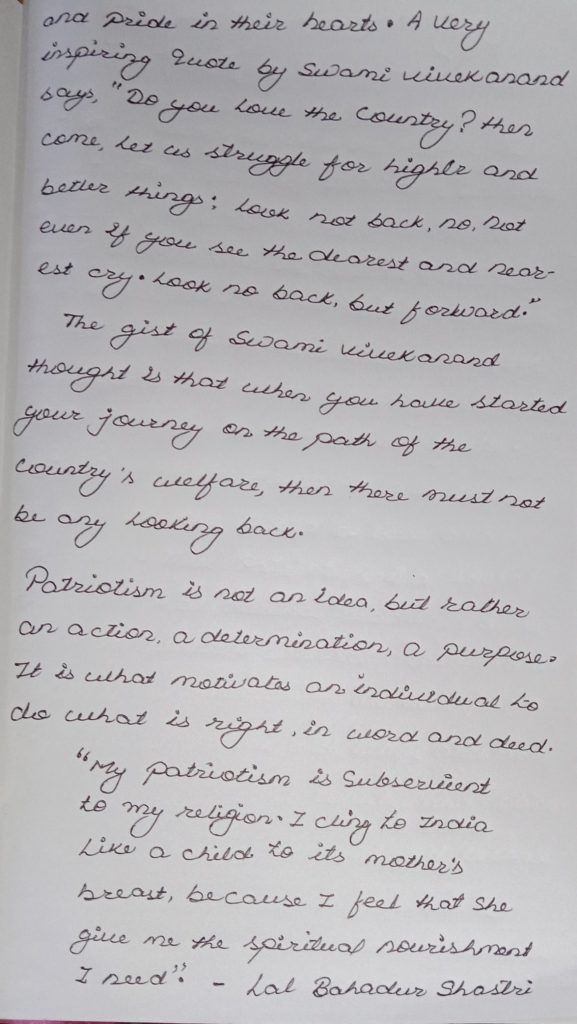 and pride in their hearts. A very
inspiring quote by Swami vivekanand
says, "Do you love the country? then
come, let us struggle for higher and
better things; look not back, no, not
even if you see the dearest and near-
est cry. Look no back, but forward."
The gist of Swami vivekanand
thought is that when you have started
your journey on the path of the
country's welfare, then there must not
be any looking back.
Patriotism is not an idea, but rather
an action, a determination, a purpose.
It is what motivates an individual to
do what is right, in word and deed.
"My patriotism is Subservient
to my religion. I cling to India
Like a child to its mother's
breast, because I feel that She
give me the spiritual nourishment
I need". - Lal Bahadur Shastri